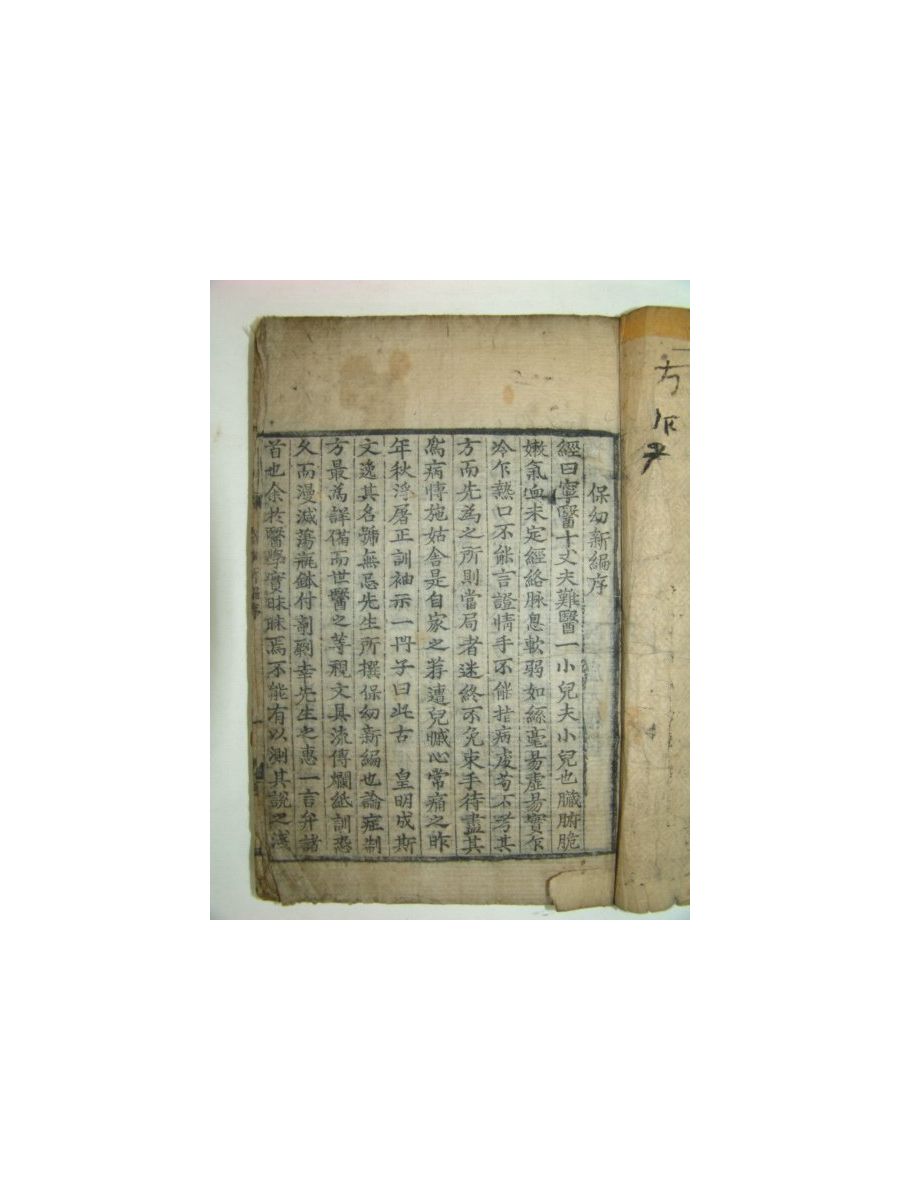 保幼新編序
經曰寧醫十丈夫難醫一小兒夫小兒也臟腑脆
嫩氣血未定經絡脉息軟弱如絲毫易虛易實乍
冷乍熱口不能言證情手不能指病處苟不考其
方而先為之所則當局者迷終不免束手待盡其
為病情施姑舍是自家之荐遭兒慽心常痛之昨
年秋浮屠正訓袖示一冊子曰此古 皇明成斯
文逸其名號無忌先生所撰保幼新編也論症制
方最為詳備而世醫之等視文具流傳爛紙訓恐
久而漫滅蕩甁鉢付剞劂幸先生之惠一言弁諸
首也余於醫學實昧昧焉不能有以測其說之淺